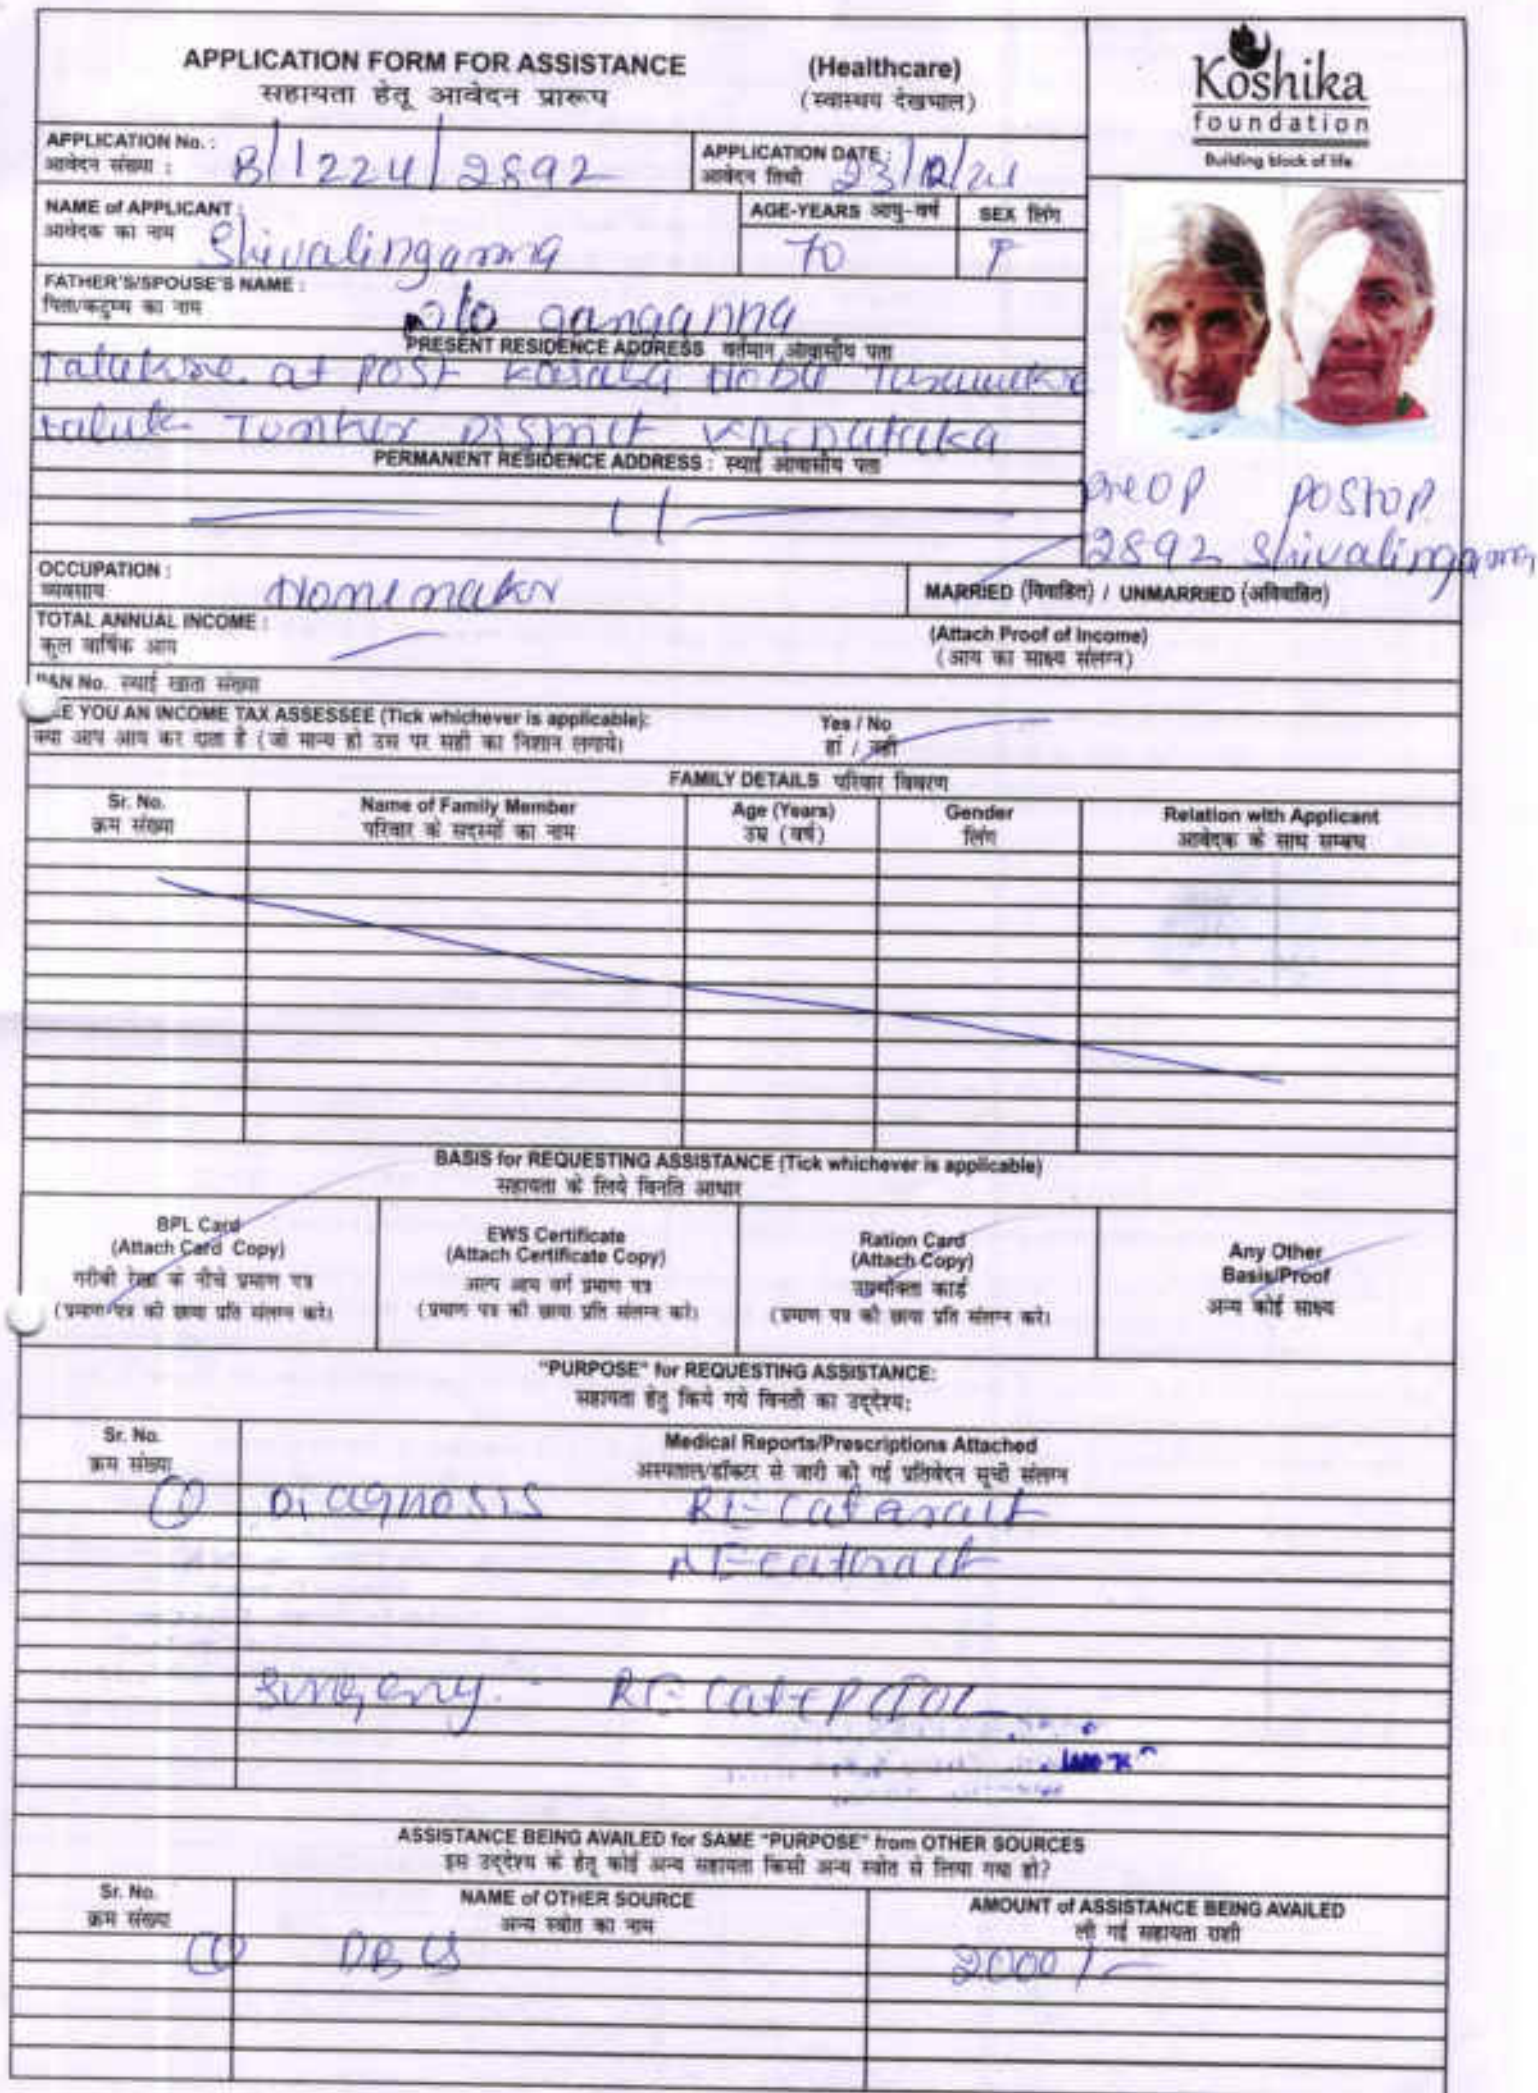 APPLICATION FORM FOR ASSISTANCE (Healthcare)
सहायता हेतू आवेदन प्रारूप (स्वास्थय देखभाल)
Koshika
foundation
Building block of life
APPLICATION No. : B/1224/2892
आवेदन संख्या :
APPLICATION DATE :
आवेदन तिथी 23/12/24
NAME of APPLICANT : AGE-YEARS आयु-वर्ष SEX लिंग
आवेदक का नाम Shivalingamma 70 F
FATHER'S/SPOUSE'S NAME :
पिता/कटुम्ब का नाम ganganna
PRESENT RESIDENCE ADDRESS वर्तमान आवासीय पता
at post Kasaba Hobli
taluk Tumkur District Karnataka
PERMANENT RESIDENCE ADDRESS : स्थाई आवासीय पता
11
preop postop
2892 Shivalingamma
OCCUPATION :
व्यवसाय Homemakr
MARRIED (विवाहित) / UNMARRIED (अविवाहित)
TOTAL ANNUAL INCOME :
कुल वार्षिक आय
(Attach Proof of Income)
(आय का साक्ष्य संलग्न)
PAN No. स्थाई खाता संख्या
E YOU AN INCOME TAX ASSESSEE (Tick whichever is applicable): Yes / No
क्या आप आय कर दाता है (जो मान्य हो उस पर सही का निशान लगाये। हां / नही
FAMILY DETAILS परिवार विवरण
Sr. No. Name of Family Member Age (Years) Gender Relation with Applicant
क्रम संख्या परिवार के सदस्यों का नाम उम्र (वर्ष) लिंग आवेदक के साथ सम्बन्ध
BASIS for REQUESTING ASSISTANCE (Tick whichever is applicable)
सहायता के लिये विनति आधार
BPL Card
(Attach Card Copy)
गरीबी रेखा के नीचे प्रमाण पत्र
(प्रमाण पत्र की छाया प्रति संलग्न करे।
EWS Certificate
(Attach Certificate Copy)
अल्प आय वर्ग प्रमाण पत्र
(प्रमाण पत्र की छाया प्रति संलग्न करे।
Ration Card
(Attach Copy)
उपभोक्ता कार्ड
(प्रमाण पत्र की छाया प्रति संलग्न करे।
Any Other
Basis/Proof
अन्य कोई साक्ष्य
"PURPOSE" for REQUESTING ASSISTANCE:
सहायता हेतु किये गये विनती का उद्देश्य:
Sr. No. Medical Reports/Prescriptions Attached
क्रम संख्या अस्पताल/डॉक्टर से जारी की गई प्रतिवेदन सूची संलग्न
① Diagnosis RE-Cataract
LE-cataract
Surgery - RE-
ASSISTANCE BEING AVAILED for SAME "PURPOSE" from OTHER SOURCES
इस उद्देश्य के हेतू कोई अन्य सहायता किसी अन्य स्त्रोत से लिया गया हो?
Sr. No. NAME of OTHER SOURCE AMOUNT of ASSISTANCE BEING AVAILED
क्रम संख्या अन्य स्त्रोत का नाम ली गई सहायता राशी
① DBCS 2000/-